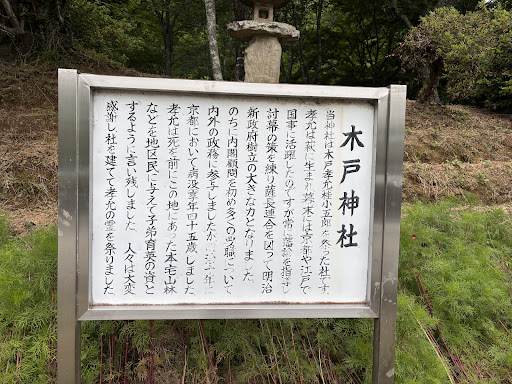 木戸神社
当神社は木戸孝允桂小五郎を祭った社です。
孝允は萩に生まれ幕末には京都や江戸で
国事に活躍したのですが常に藩論を指導し
討幕の策を練り薩長連合を図って明治
新政府樹立の大きな力となりました。
のちに内閣顧問を初め多くの要職について
内外の政務に参与しましたが
京都において病没享年四十五歳でした
孝允は死を前にこの地にあった本宅山林
などを地区民に与えて子弟育英の資と
するように言い残しました 人々は大変
感謝し社を建てて孝允の霊を祭りました